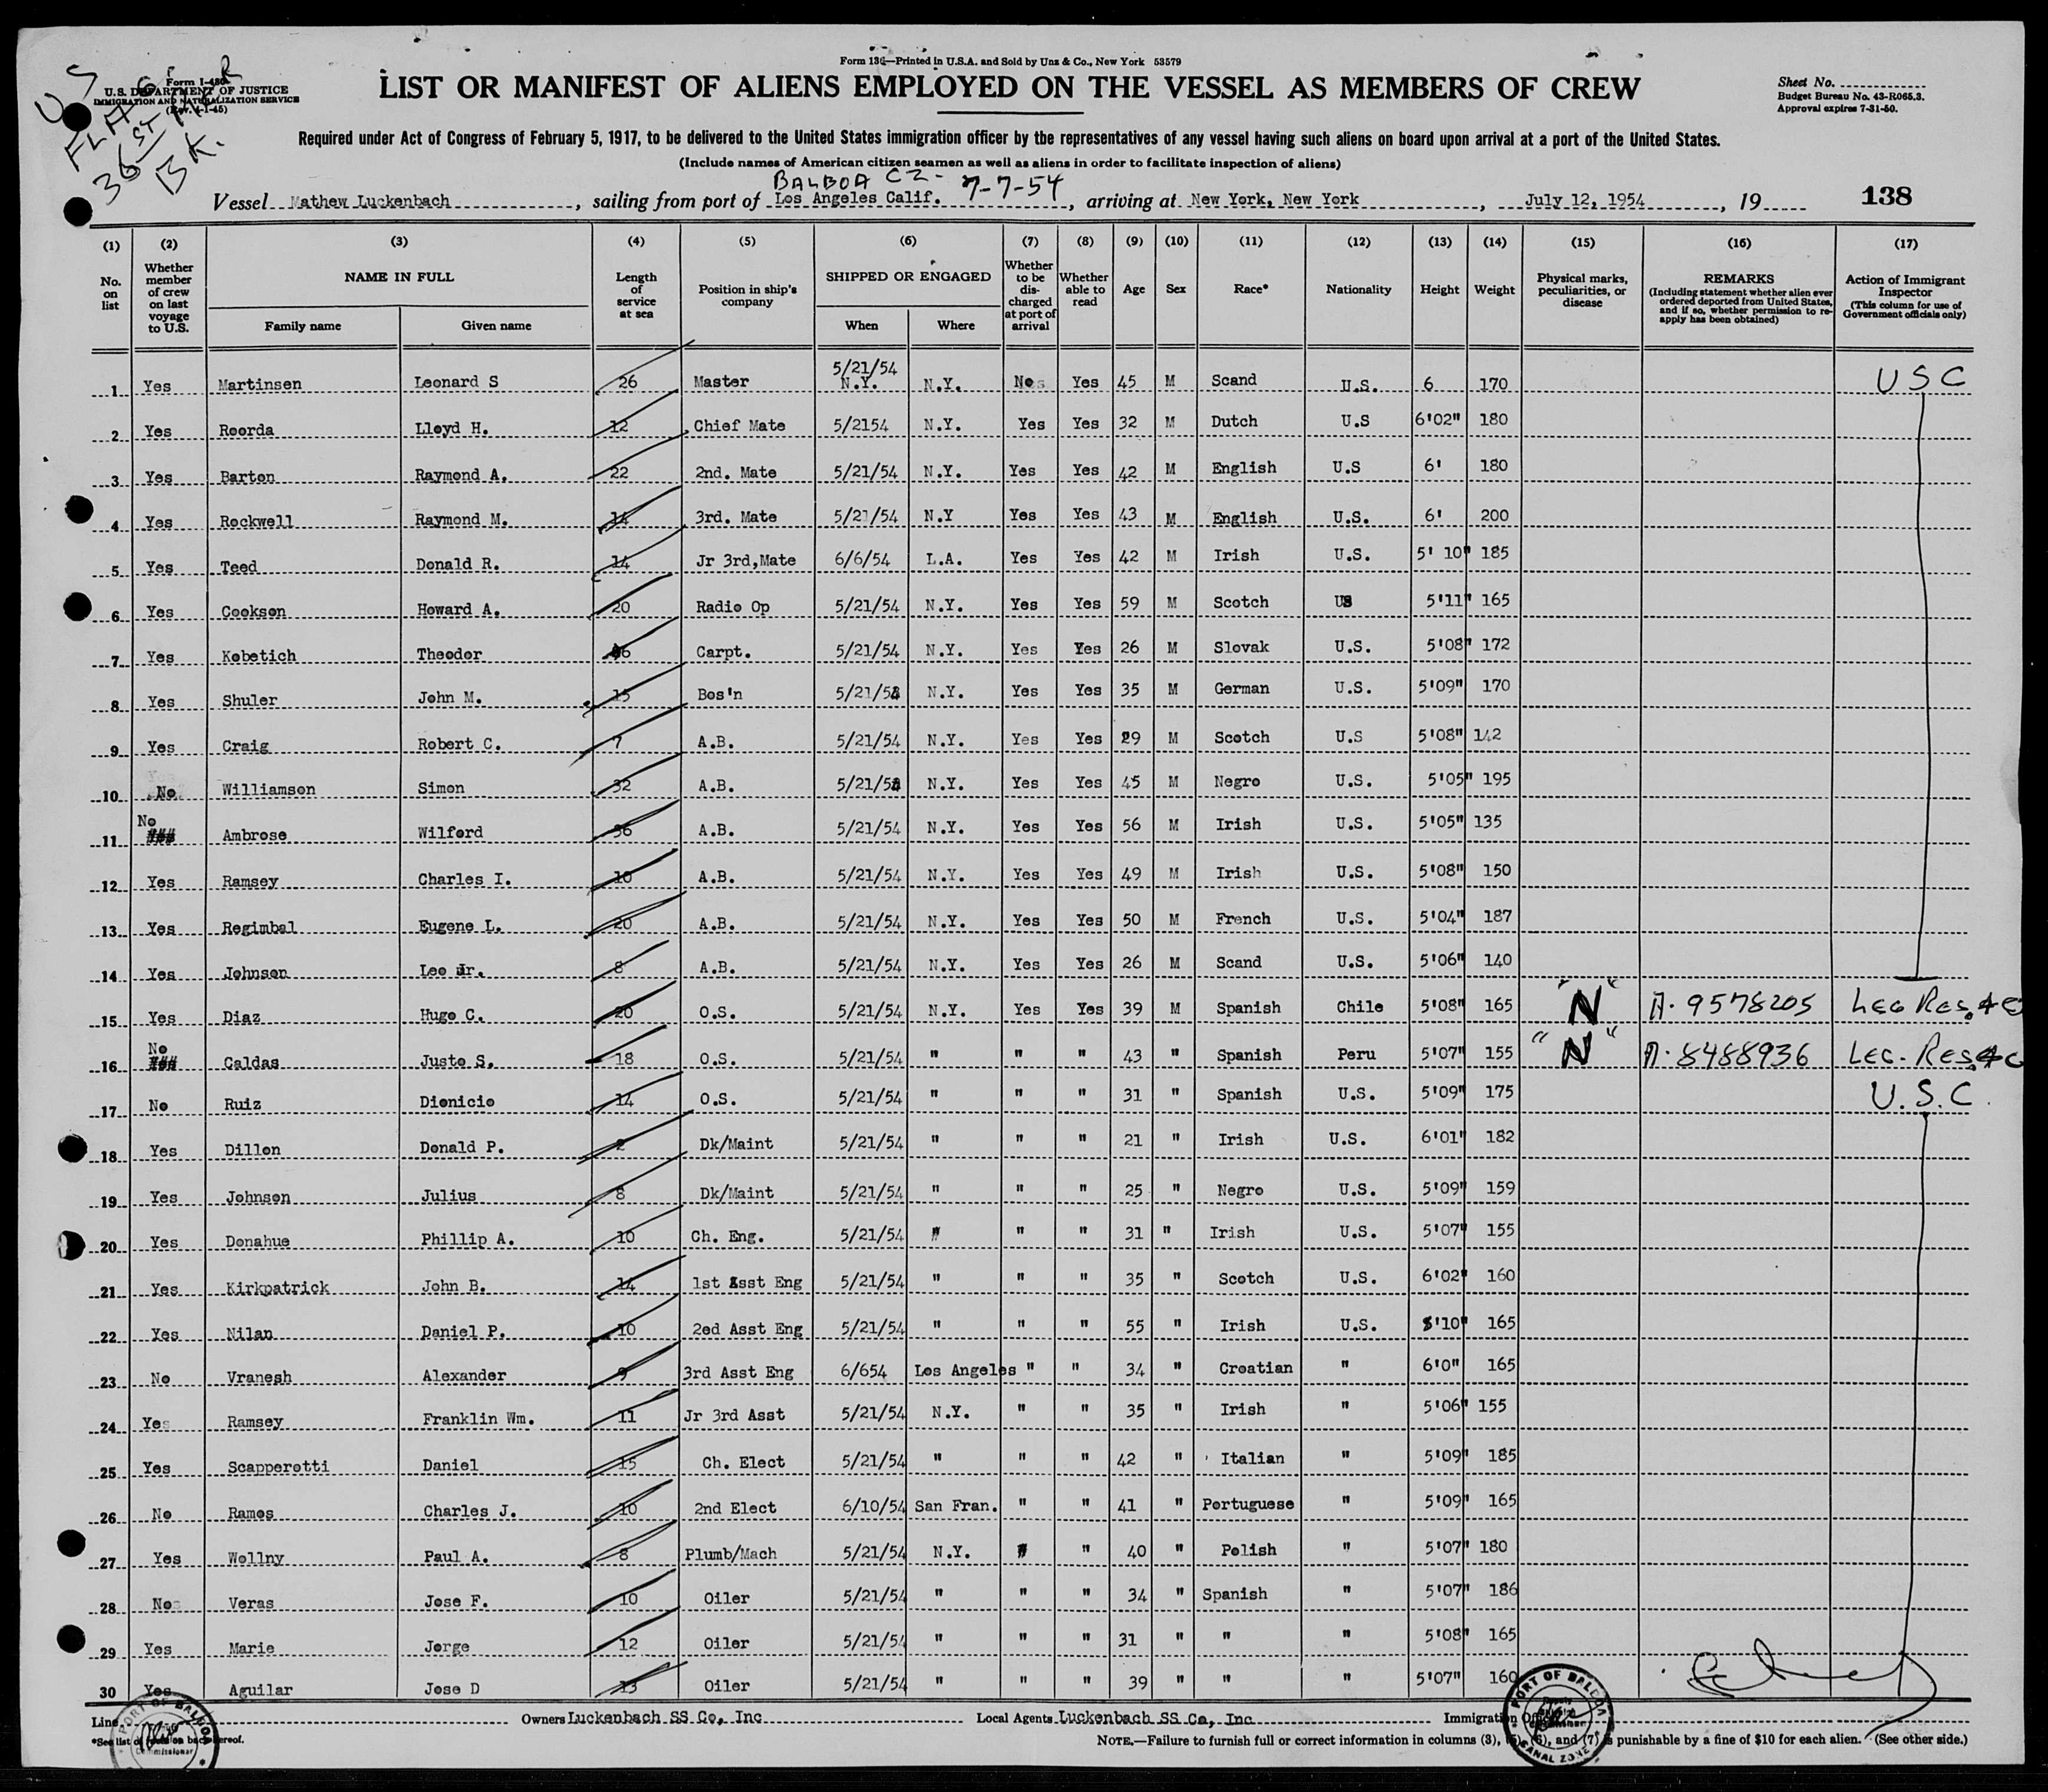 U S
FLAG
36 ST
BK.
Form I-480
U.S. DEPARTMENT OF JUSTICE
IMMIGRATION AND NATURALIZATION SERVICE
Form 136—Printed in U.S.A. and Sold by Unz & Co., New York 53579
LIST OR MANIFEST OF ALIENS EMPLOYED ON THE VESSEL AS MEMBERS OF CREW
Sheet No.
Budget Bureau No. 43-R065.3.
Approval expires 7-31-50.
Required under Act of Congress of February 5, 1917, to be delivered to the United States immigration officer by the representatives of any vessel having such aliens on board upon arrival at a port of the United States.
(Include names of American citizen seamen as well as aliens in order to facilitate inspection of aliens)
BALBOA CZ- 7-7-54
Vessel Mathew Luckenbach, sailing from port of Los Angeles Calif., arriving at New York, New York, July 12, 1954, 19 138
(1) (2) (3) (4) (5) (6) (7) (8) (9) (10) (11) (12) (13) (14) (15) (16) (17)
No. on list Whether member of crew on last voyage to U.S. NAME IN FULL Family name Given name Length of service at sea Position in ship's company SHIPPED OR ENGAGED When Where Whether to be discharged at port of arrival Whether able to read Age Sex Race* Nationality Height Weight Physical marks, peculiarities, or disease REMARKS (Including statement whether alien ever ordered deported from United States, and if so, whether permission to re-apply has been obtained) Action of Immigrant Inspector (This column for use of Government officials only)
1 Yes Martinsen Leonard S 26 Master 5/21/54 N.Y. N.Y. No Yes 45 M Scand U.S. 6 170 USC
2 Yes Roorda Lloyd H. 12 Chief Mate 5/2154 N.Y. Yes Yes 32 M Dutch U.S 6'02" 180
3 Yes Barton Raymond A. 22 2nd. Mate 5/21/54 N.Y. Yes Yes 42 M English U.S 6' 180
4 Yes Rockwell Raymond M. 14 3rd. Mate 5/21/54 N.Y Yes Yes 43 M English U.S. 6' 200
5 Yes Teed Donald R. 14 Jr 3rd,Mate 6/6/54 L.A. Yes Yes 42 M Irish U.S. 5' 10" 185
6 Yes Cookson Howard A. 20 Radio Op 5/21/54 N.Y. Yes Yes 59 M Scotch US 5'11" 165
7 Yes Kobetich Theodor Carpt. 5/21/54 N.Y. Yes Yes 26 M Slovak U.S. 5'08" 172
8 Yes Shuler John M. 15 Bos'n 5/21/54 N.Y. Yes Yes 35 M German U.S. 5'09" 170
9 Yes Craig Robert C. 7 A.B. 5/21/54 N.Y. Yes Yes 29 M Scotch U.S 5'08" 142
10 No Williamson Simon 32 A.B. 5/21/54 N.Y. Yes Yes 45 M Negro U.S. 5'05" 195
11 No ### Ambrose Wilford 36 A.B. 5/21/54 N.Y. Yes Yes 56 M Irish U.S. 5'05" 135
12 Yes Ramsey Charles I. 10 A.B. 5/21/54 N.Y. Yes Yes 49 M Irish U.S. 5'08" 150
13 Yes Regimbal Eugene L. 20 A.B. 5/21/54 N.Y. Yes Yes 50 M French U.S. 5'04" 187
14 Yes Johnson Leo Jr. 8 A.B. 5/21/54 N.Y. Yes Yes 26 M Scand U.S. 5'06" 140
15 Yes Diaz Hugo C. 20 O.S. 5/21/54 N.Y. Yes Yes 39 M Spanish Chile 5'08" 165 "N" A-9578205 LEG RES.
16 No ### Caldas Justo S. 18 O.S. 5/21/54 " " " 43 " Spanish Peru 5'07" 155 "N" A-8488936 LEG. RES.
17 No Ruiz Dionicio 14 O.S. 5/21/54 " " " 31 " Spanish U.S. 5'09" 175 U.S.C.
18 Yes Dillon Donald P. 2 Dk/Maint 5/21/54 " " " 21 " Irish U.S. 6'01" 182
19 Yes Johnson Julius 8 Dk/Maint 5/21/54 " " " 25 " Negro U.S. 5'09" 159
20 Yes Donahue Phillip A. 10 Ch. Eng. 5/21/54 " " " 31 " Irish U.S. 5'07" 155
21 Yes Kirkpatrick John B. 14 1st Asst Eng 5/21/54 " " " 35 " Scotch U.S. 6'02" 160
22 Yes Nilan Daniel P. 10 2ed Asst Eng 5/21/54 " " " 55 " Irish U.S. 5'10" 165
23 No Vranesh Alexander 9 3rd Asst Eng 6/654 Los Angeles " " 34 " Croatian " 6'0" 165
24 Yes Ramsey Franklin Wm. 11 Jr 3rd Asst 5/21/54 N.Y. " " 35 " Irish " 5'06" 155
25 Yes Scapperotti Daniel 15 Ch. Elect 5/21/54 " " " 42 " Italian " 5'09" 185
26 No Ramos Charles J. 10 2nd Elect 6/10/54 San Fran. " " 41 " Portuguese " 5'09" 165
27 Yes Wollny Paul A. 8 Plumb/Mach 5/21/54 N.Y. " " 40 " Polish " 5'07" 180
28 No Veras Jose F. 10 Oiler 5/21/54 " " " 34 " Spanish " 5'07" 186
29 Yes Marie Jorge 12 Oiler 5/21/54 " " " 31 " " " 5'08" 165
30 Yes Aguilar Jose D 13 Oiler 5/21/54 " " " 39 " " " 5'07" 160
Line Owners Luckenbach SS Co, Inc Local Agents Luckenbach SS Co, Inc Immigration Officer
*See list of races on back hereof.
NOTE.—Failure to furnish full or correct information in columns (3), (5), (6), and (7) is punishable by a fine of $10 for each alien. (See other side.)
PORT OF BALBOA
PORT OF BALBOA CANAL ZONE